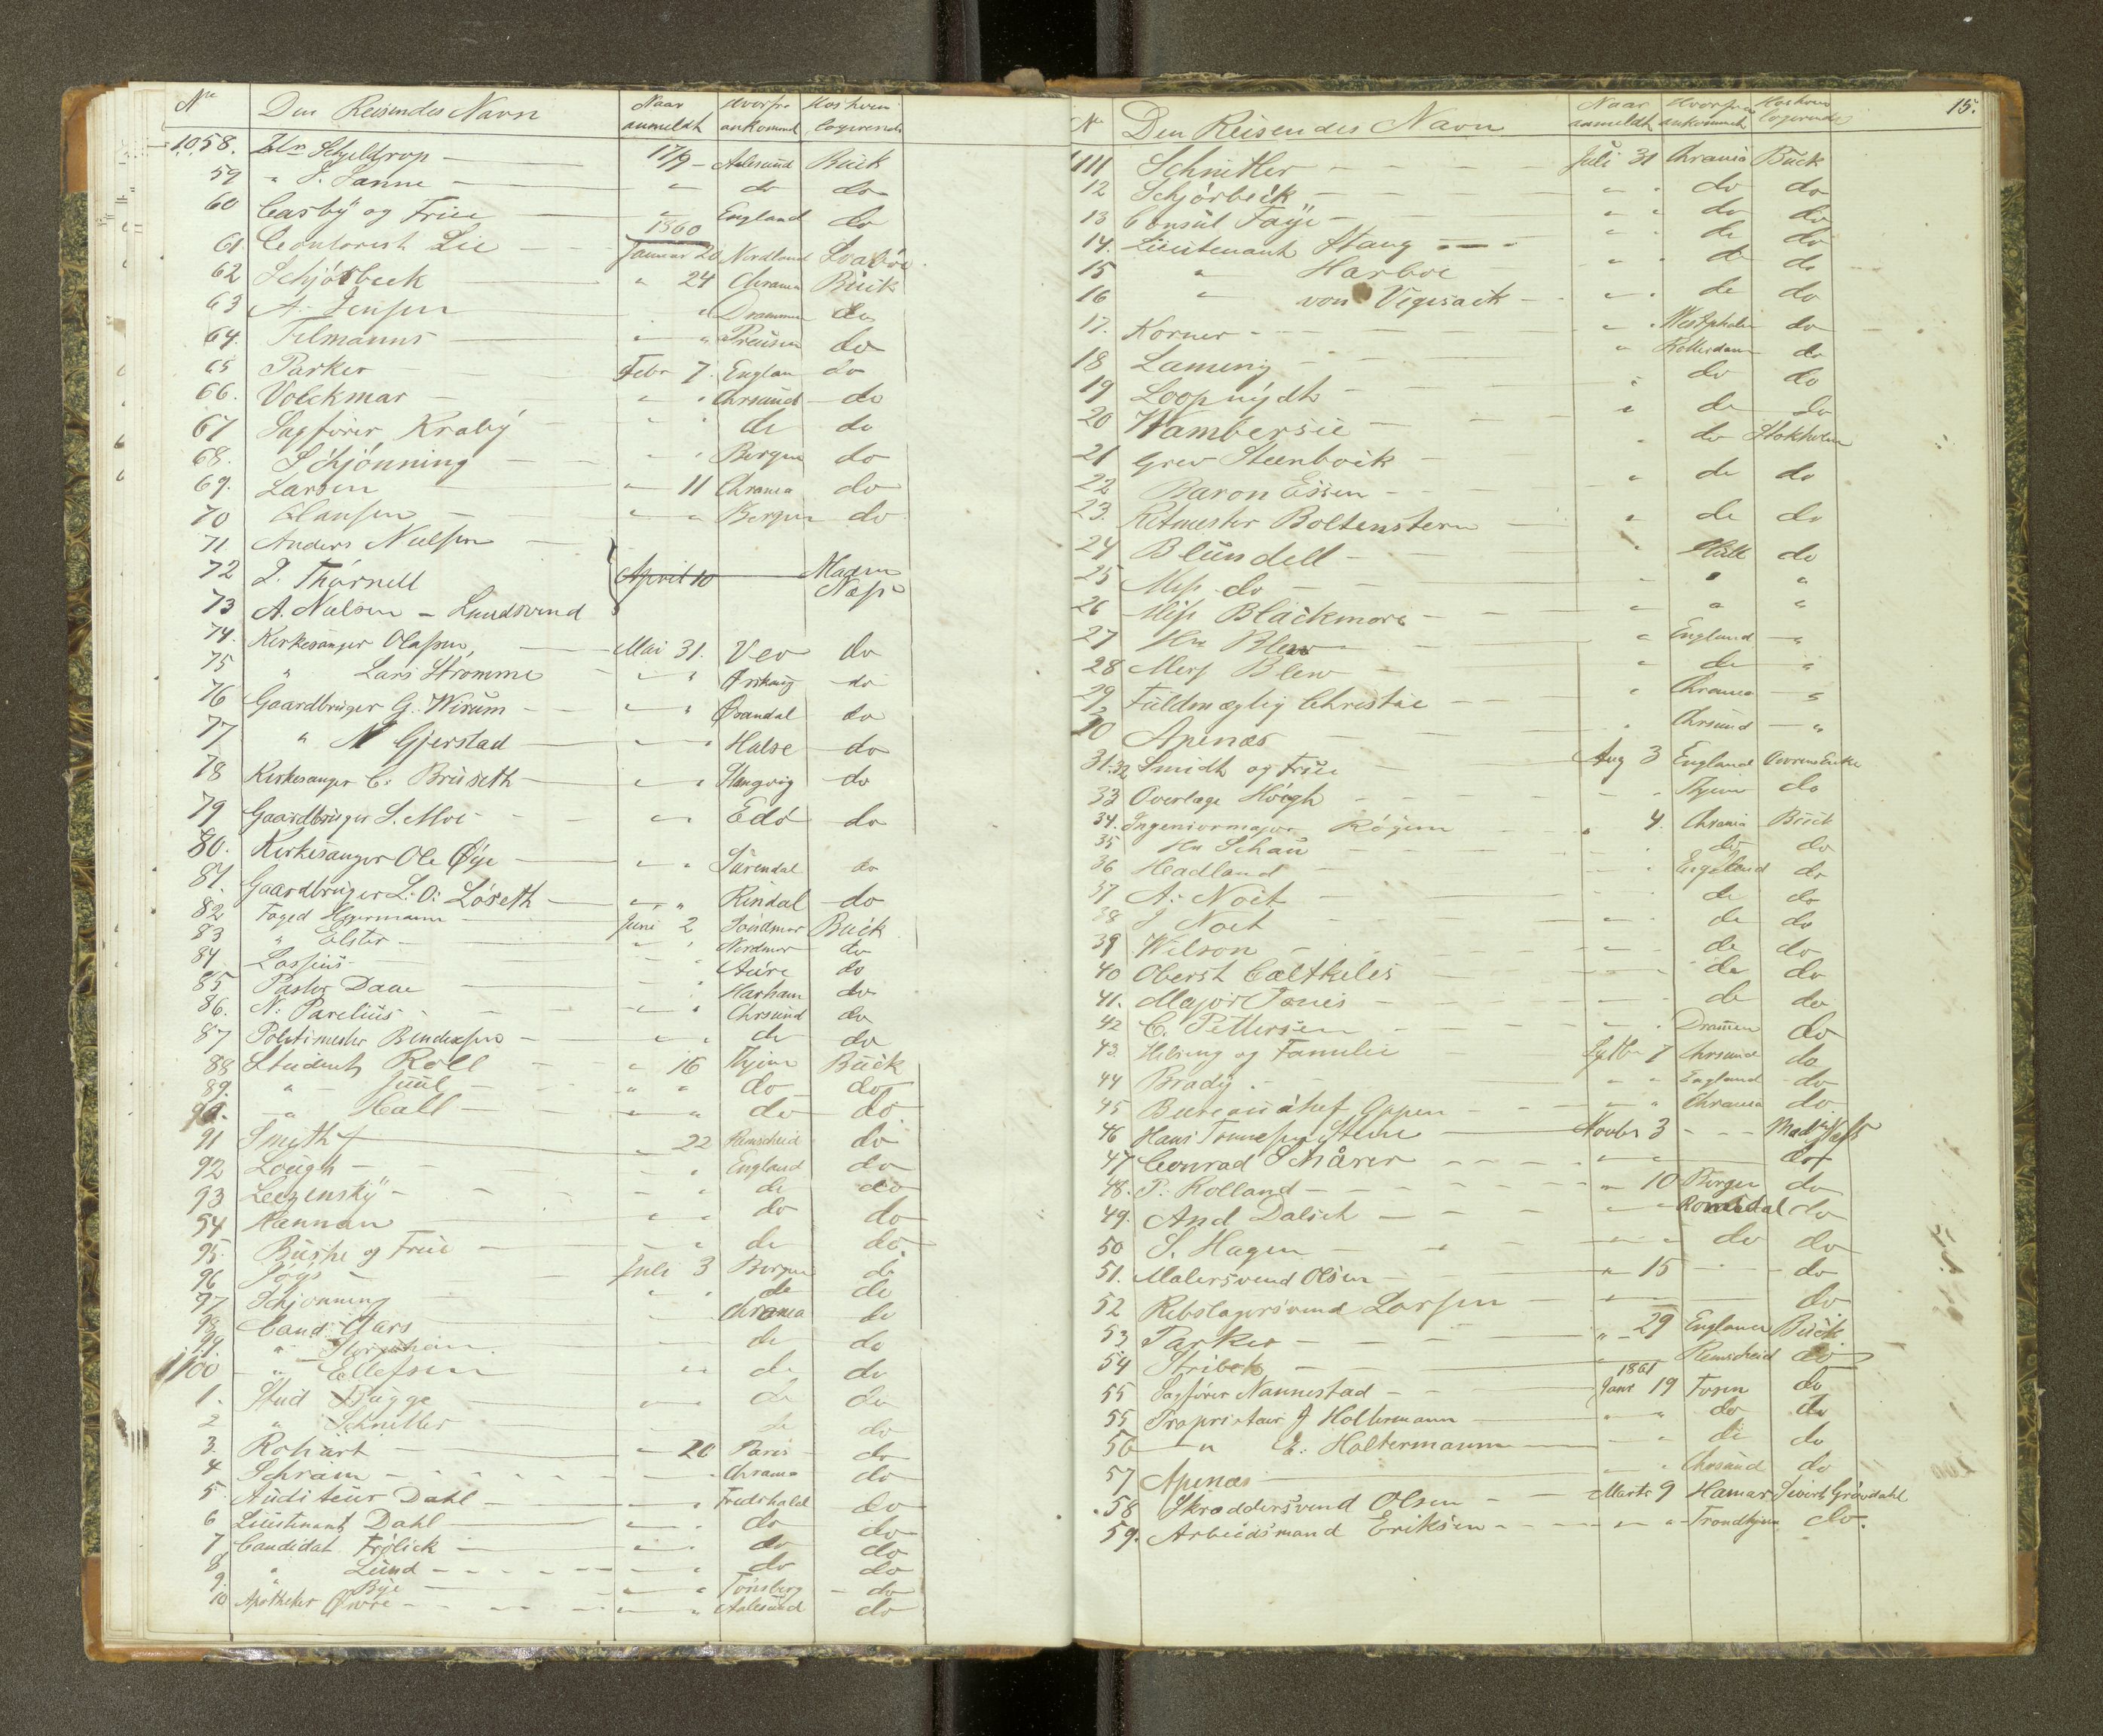 No Den Reisendes Navn Naar anmeldt Hvorfra ankommet Hos hvem logerende
1058. Hr Schjeldrop 17/9 Aalesund Bück
59 " J. Sanne " do do
60 Casby og Frue " England do
1860
61. Contorist Lie Januar 20 Nordland
62 Schjørbeck " 24 Chrania Bück
63 A. Jensen " Drammen do
64. Tilmanns " Preusen do
65 Parker Febr 7. Englan do
66. Volckmar " " Chrsund do
67 Sagfører Kraby " " do do
68. Schjønning " " Bergen do
69. Larsen " 11 Chrania do
70 Clausen " " Bergen do
71 Anders Nielsen
72 J. Thørnell April 10 Madm Næss
73 A. Nielsen - Lundsvend
74. Kirkesanger Olassen Mai 31. Veø do
75 " Lars Stromme " " do
76 Gaardbruger G. Wirum " " Øxandal do
77 " N Gjerstad " " Halse do
78 Kirkesanger C. Brüseth " " Stangvig do
79 Gaardbruger S. Moe " " Edö do
80. Kirkesanger Ole Øye " " Surendal do
81. Gaardbruger L. O. Löseth " " Rindal do
82 Foged Juni 2 Söndmør Bück
83 " Elster " " Nordmør do
84 Lossius " Aure do
85 Pastor Daae " Harham do
86. N. Parelius " " Chrsund do
87 Politimester Bendixsen " " do do
88 Student Roll " 16 Thjem Bück
89. " Juul " " do do
90. " Hall " " do do
91 Smith " 22 Remscheid do
92 Lough " England do
93 " do do
94 Hannan " " do do
95. og Frue " do do
96 Juli 3 Bergen do
97 Schjonning " " do do
98 Cand: Chrania do
99. " do do
1100 " Ellefsen " do do
1. Stud Bugge " do do
2 " Schnitler do do
3. Rohart " 20 Paris do
4 Schram " Chrania do
5. Auditeur Dahl " " Fredshald do
6 Lieutenant Dahl " " do do
7 Candidat Frölick " do do
8. " Lund " do do
9. " Bye " " Tönsberg do
10 Apotheker Øwre " " Aalesund do
15.
No Den Reisendes Navn Naar anmeldt Hvorfra ankommet Hos hvem logerende
1111 Schnitler Juli 31 Chrania Bück
12 Schjørbeck " " do do
13 Consul Faye " " do do
14. Lieutenant Stang " " do do
15 " Harboe " " do do
16 " von Vegesack " " do do
17. Korner " " Westphalen do
18 Laming " Rotterdam do
19 Loopuydt " do do
20 Wambersie " do do
21 Grev Steenbock " do Stokholm
22 Baron Essen " do do
23. Ritmester Boltenstern " do do
24 Blundell " Hull do
25 Miss do " " "
26 Miss Blackmore " " "
27 Hr Blew " England "
28 Mess Blew " do "
29. Fuldmægtig Christie " Chrania "
30 Apenæs " Chrsund "
31-32 Smidt og Frue Aug 3 England
33 Overlæge Höegh " " Thjem do
34. Ingeniormajor " 4. Chrania Bück
35 Hr Schau " do do
36 Headland " England do
37 A. Noit do do
38 J Noit " " do do
39 Wilson " do do
40 Oberst " do do
41. Major Jones " do do
42 C. Pettersen " " Dramen do
43. og Familie Sptbr 7 Chrsund do
44 Brady " " England do
45 Bureauchef Oppen " " Chrania do
46 Hans Novbr 3 Madm Næss
47 Conrad Schårer " " do
48. P. Rolland " 10 Bergen do
49. And Dalseth " " Romsdal do
50 S. Hagen " " do do
51. Malersvend Olsen " 15 do
52 Rebslagersvend Larsen " do
53 Parker " 29 Englan Bück
54 Stribek " Remscheid do
1861
55 Sagfører Nannestad Janr 19 Fosen do
55 Proprietair J Holtermann " " do do
56 " E. Holtermann " do do
57 Apenæs " " Chrsund do
58 Skræddersvend Olsen Marts 9 Hamar Sivert Grövdahl
59. Arbeidsmand Eriksen " " Trondhjem do.